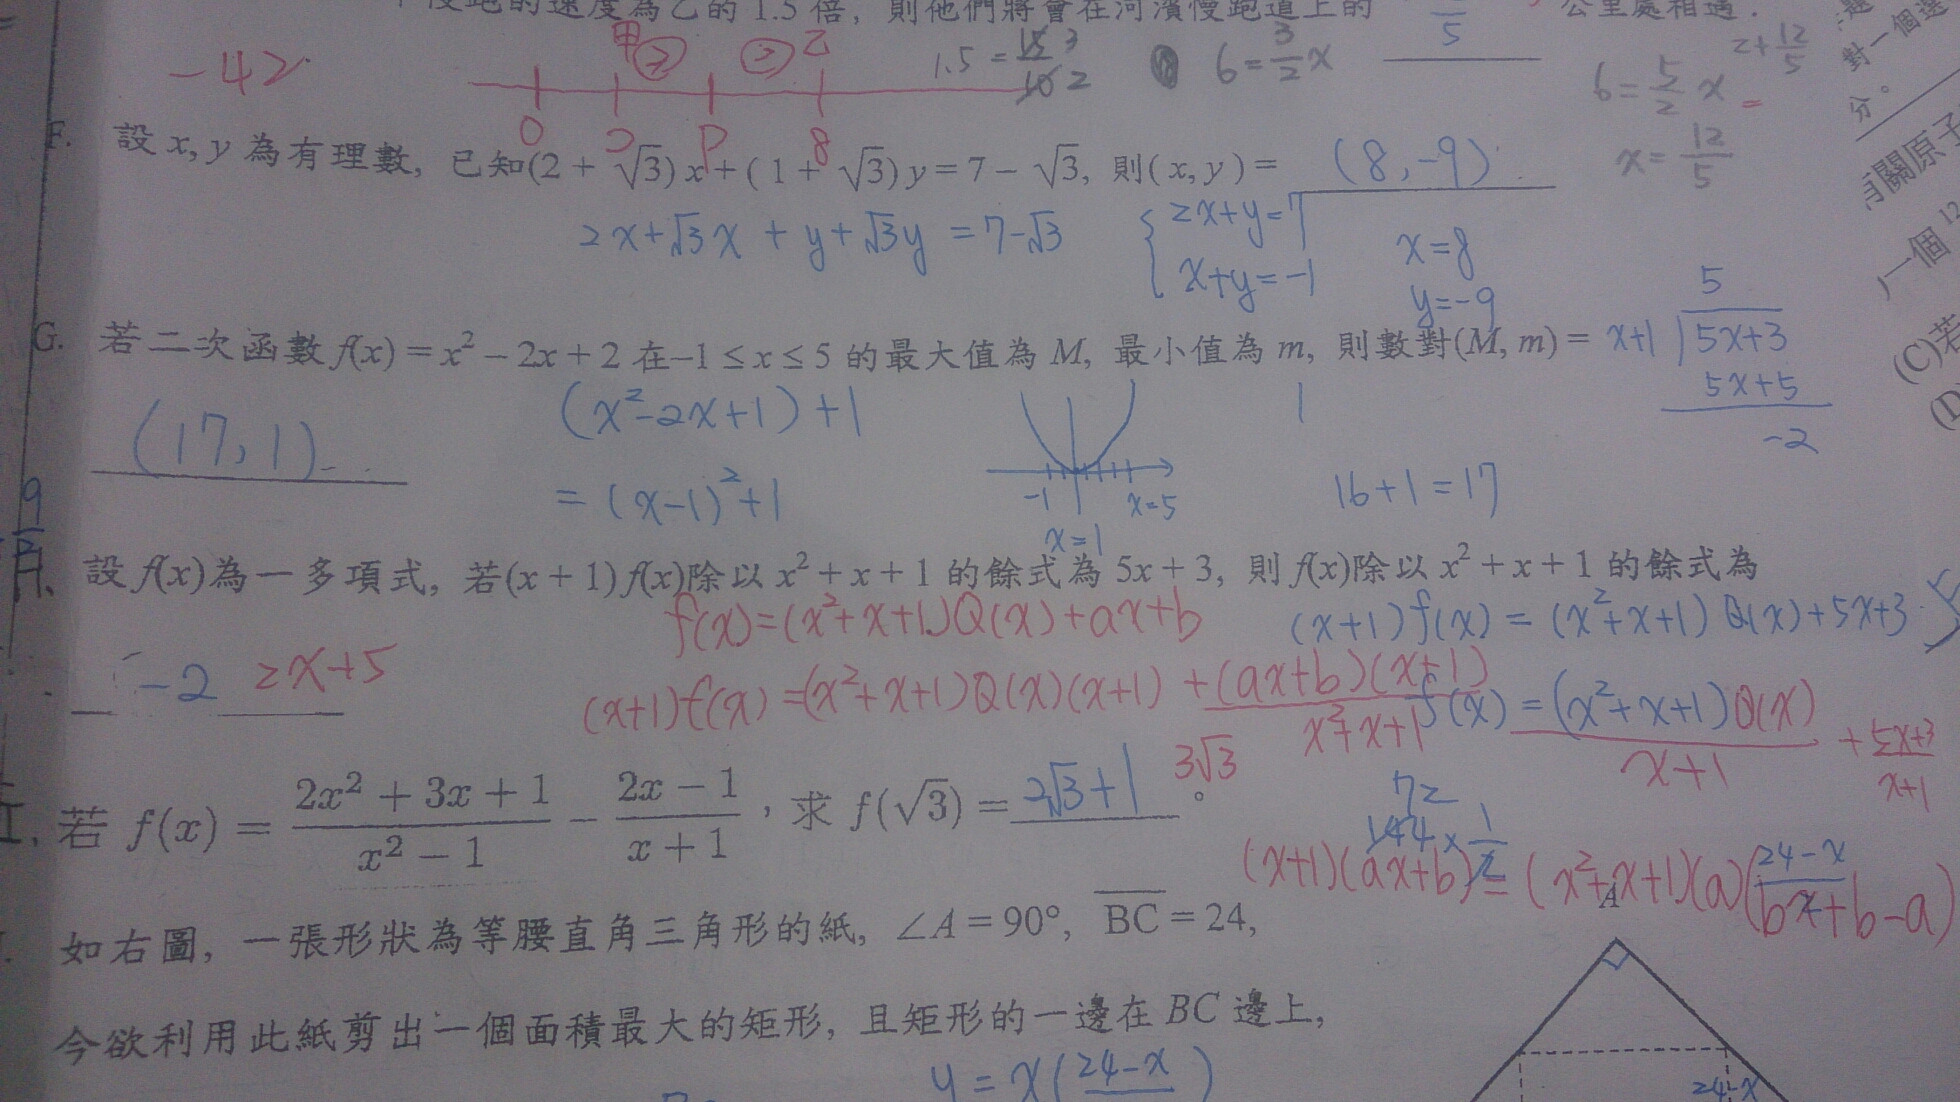 慢跑的速度為乙的 1.5 倍, 則他們將會在河濱慢跑道上的 5 公里處相遇.
甲 2 2 乙
1.5 = 15/10 3/2
6 = 3/2 x
2+12/5
-42
6 = 5/2 x =
對一個
分。
0 2 P 8
x = 12/5
F. 設 x, y 為有理數, 已知(2 + √3) x + ( 1 + √3) y = 7 − √3, 則( x, y ) = (8, -9)
有關原子
2x+√3x + y+√3y = 7-√3
{ 2x+y=7
x+y=-1
x=8
y=-9
一個 12
5
G. 若二次函數 f(x) = x² − 2x + 2 在 −1 ≤ x ≤ 5 的最大值為 M, 最小值為 m, 則數對(M, m) =
x+1 5x+3
5x+5
-2
(C)若
(D
(17, 1)
(x²-2x+1)+1
= (x-1)²+1
-1 x=5
x=1
1
16+1=17
9
H. 設 f(x)為一多項式, 若(x + 1) f(x)除以 x² + x + 1 的餘式為 5x + 3, 則 f(x)除以 x² + x + 1 的餘式為
-2 2x+5
f(x)=(x²+x+1)Q(x)+ax+b
(x+1)f(x) = (x²+x+1)Q(x)+5x+3
(x+1)f(x)=(x²+x+1)Q(x)(x+1) + (ax+b)(x+1)
x²+x+1
f(x) = (x²+x+1)Q(x)/x+1 + 5x+3/x+1
I. 若 f(x) = (2x² + 3x + 1)/(x² − 1) − (2x − 1)/(x + 1), 求 f(√3) = 2√3+1 。
3√3
72
144 × 1/2
(x+1)(ax+b) = (x²+x+1)(a)(bx+b-a)
24-x
如右圖, 一張形狀為等腰直角三角形的紙, ∠A = 90°, BC = 24,
A
今欲利用此紙剪出一個面積最大的矩形, 且矩形的一邊在 BC 邊上,
y = x(24-x)
24-x